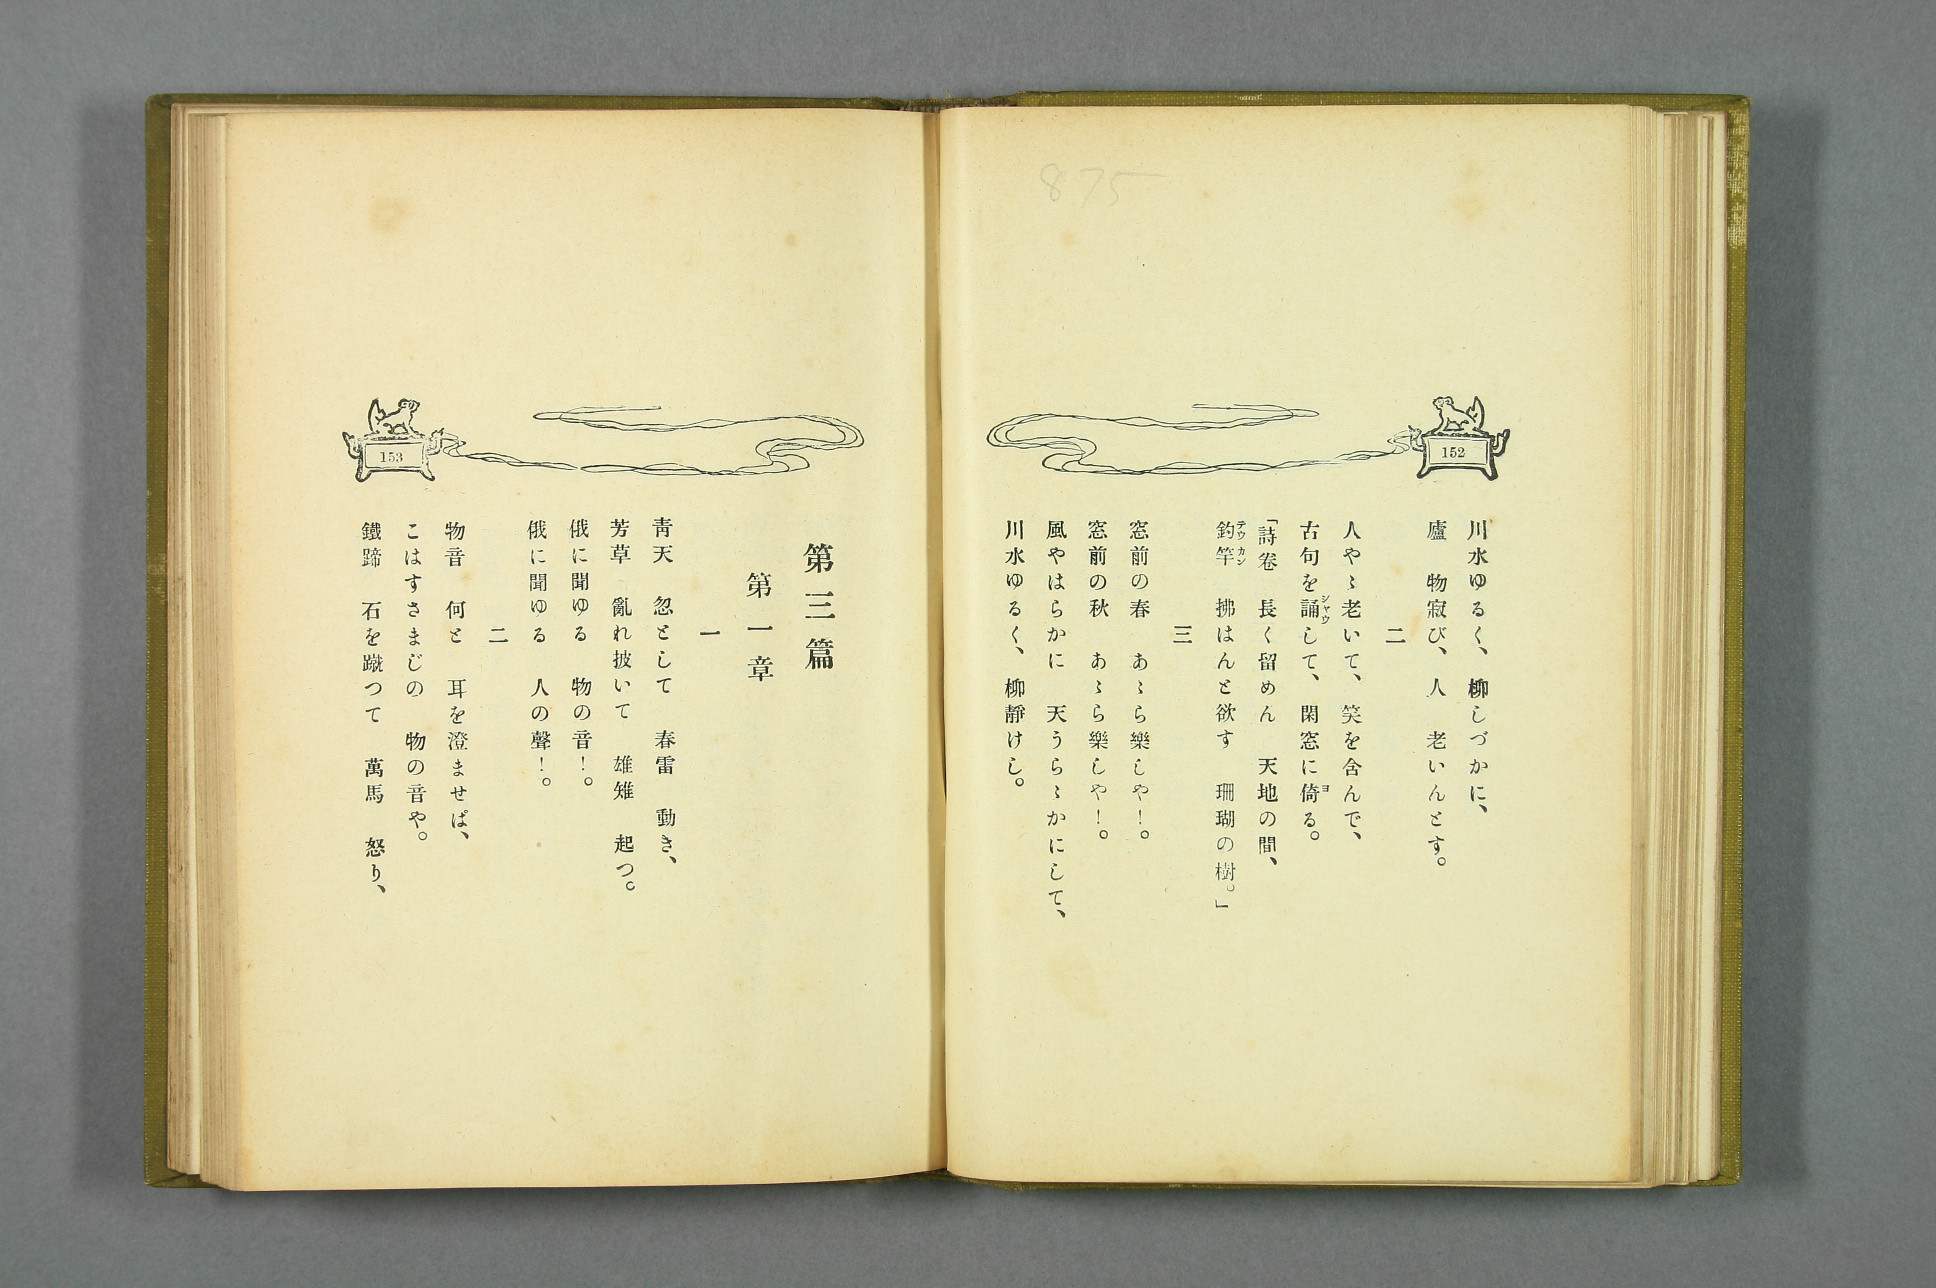 875
152
川水ゆるく、柳しづかに、
廬　物寂び、人　老いんとす。
二
人やゝ老いて、笑を含んで、
古句を誦して、閑窓に倚る。
シヤウ
ヨ
「詩卷　長く留めん　天地の間、
釣竿　拂はんと欲す　珊瑚の樹。」
テウカン
三
窓前の春　あゝら樂しや！。
窓前の秋　あゝら樂しや！。
風やはらかに　天うらゝかにして、
川水ゆるく、柳靜けし。
153
第三篇
第一章
一
靑天　忽として　春雷　動き、
芳草　亂れ披いて　雄雉　起つ。
俄に聞ゆる　物の音！。
俄に聞ゆる　人の聲！。
二
物音　何と　耳を澄ませば、
こはすさまじの　物の音や。
鐵蹄　石を蹴つて　萬馬　怒り、